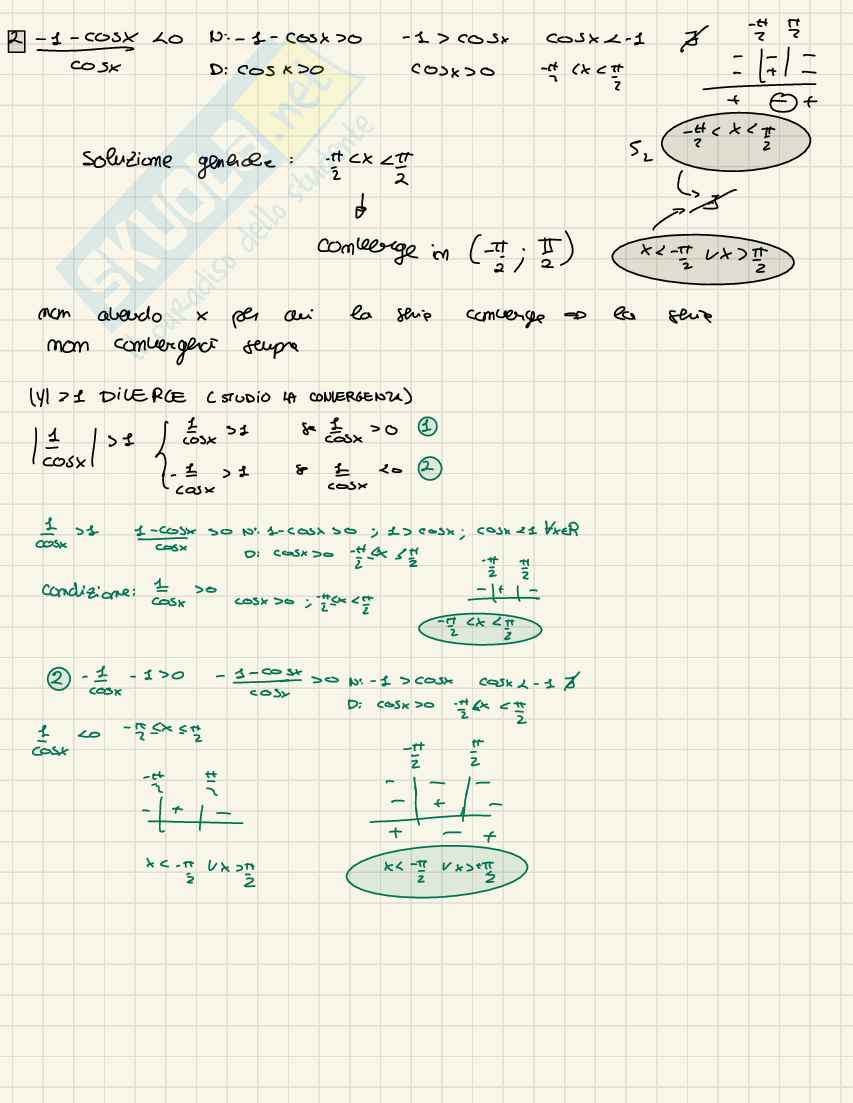 2 -1-cosx/cosx <0 N: -1-cosx>0 -1>cosx cosx<-1 ∄
D: cosx>0 cosx>0 -π/2 <x<π/2
-π/2 π/2
- | - | -
- | + | -
+ - +
Soluzione generale: -π/2 <x<π/2
S₂ -π/2 < x < π/2
↓
∄
converge in (-π/2 ; π/2)
x<-π/2 ∨ x>π/2
SKUOLA.net
il paradiso dello studente
non avendo x per cui la serie converge ⇒ la serie
non convergerà sempre
|y|>1 DIVERGE (STUDIO LA CONVERGENZA)
|1/cosx| >1 { 1/cosx >1 & 1/cosx >0 1
-1/cosx >1 & 1/cosx <0 2
1/cosx >1 1-cosx/cosx >0 N: 1-cosx>0 ; 1>cosx ; cosx<1 ∀x∈R
D: cosx>0 -π/2 ≤x ≤π/2
condizione: 1/cosx >0 cosx>0 ; -π/2 ≤x<π/2
-π/2 π/2
- | + | -
-π/2 <x<π/2
2 -1/cosx -1>0 -1-cosx/cosx >0 N: -1>cosx cosx<-1 ∄
D: cosx>0 -π/2 ≤x <π/2
1/cosx <0 -π/2 ≤x≤π/2
-π/2 π/2
- | + | -
x<-π/2 ∨ x>π/2
-π/2 π/2
- | - | -
- | + | -
+ - +
x<-π/2 ∨ x>+π/2